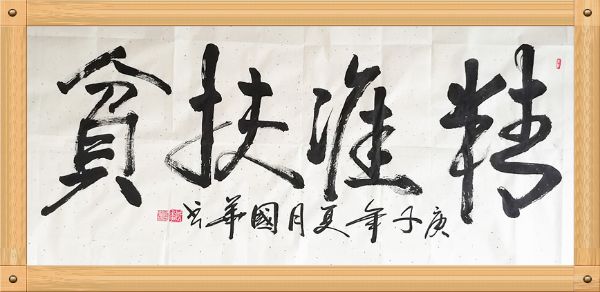 精准扶貧
庚子年夏月國華书